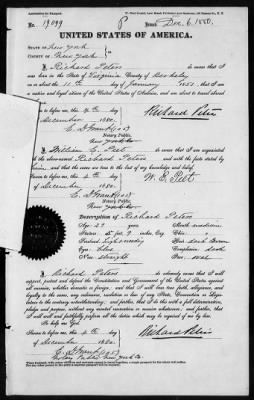 No. 19099
Issued Dec. 6, 1880.
UNITED STATES OF AMERICA.
STATE OF New York
COUNTY OF New York
I, Richard Peters
was born in the State of Virginia County of Berkeley
on or about the 11th day of January 1851, that I am
a native and loyal citizen of the United States of America, and am about to travel abroad.
Sworn to before me, this 4th day
of December 1880.
Richard Peters
Notary Public.
New York Co
I, William E. Peet
am acquainted
with the above-named Richard Peters and with the facts stated by
him, and that the same are true to the best of my knowledge and belief.
Sworn to before me, this 4th day
of December 1880.
W. E. Peet
Notary Public.
New York Co
Description of Richard Peters
Age: 29 years
Mouth: medium
Stature: 5 feet 9 inches, Eng.
Chin:
Forehead:
Hair: dark Brown
Eyes: blue
Complexion: dark
Nose: straight
Face: oval
I, Richard Peters do solemnly swear that I will
support, protect and defend the Constitution and Government of the United States against
all enemies, whether domestic or foreign, and that I will bear true faith, allegiance, and
loyalty to the same, any ordinance, resolution or law of any State, Convention or Legislature
to the contrary notwithstanding; and further, that I do this with a full determination,
pledge and purpose, without any mental reservation or evasion whatsoever, and further, that
I will well and faithfully perform all the duties which may be required of me by law.
So help me God.
Sworn to before me, this 4th day
of December 1880.
Richard Peters